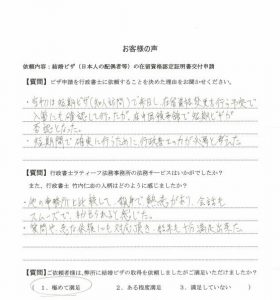 お客様の声
依頼内容:結婚ビザ(日本人の配偶者等)の在留資格認定証明書交付申請
【質問】ビザ申請を行政書士に依頼することを決めた理由をお聞かせください。
・当初は短期ビザ(知人訪問)で来日し、在留資格変更を行う予定で
入管にも確認して行たが、在中国領事館で短期ビザが
否認となった。
・短期間で確実に行うために行政書士の力が必要と考えた
【質問】行政書士ラティーフ法務事務所の法務サービスはいかがでしたか?
また、行政書士 竹内仁志の人柄はどのように感じましたか?
・他の事務所と比較して、親身で熱意があり、会話も
スムーズで、わかりやすく感じた。
・質問や、急な依頼にも対応頂き、始終も十分満足出来た。
【質問】ご依頼者様は、弊所に結婚ビザの取得を依頼しましたがご満足いただけましたか?
1.極めて満足 2.ある程度満足 3.満足していない